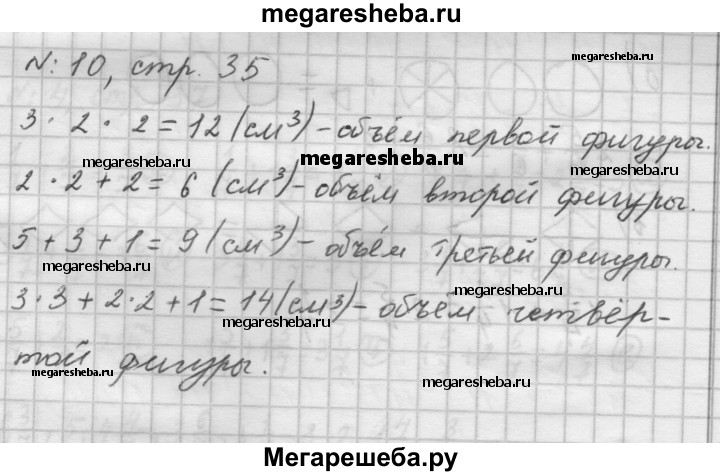 megaresheba.ru
N: 10, стр. 35
megaresheba.ru
3 · 2 · 2 = 12 (см³) - объём первой фигуры.
megaresheba.ru
megaresheba.ru
2 · 2 + 2 = 6 (см³) - объём второй фигуры.
5 + 3 + 1 = 9 (см³) - объём третьей фигуры.
megaresheba.ru
megaresheba.ru
3·3 + 2·2 + 1 = 14 (см³) - объём четвёр-
megaresheba.ru
той фигуры.
megaresheba.ru
megaresheba.ru
Мегарешеба.ру